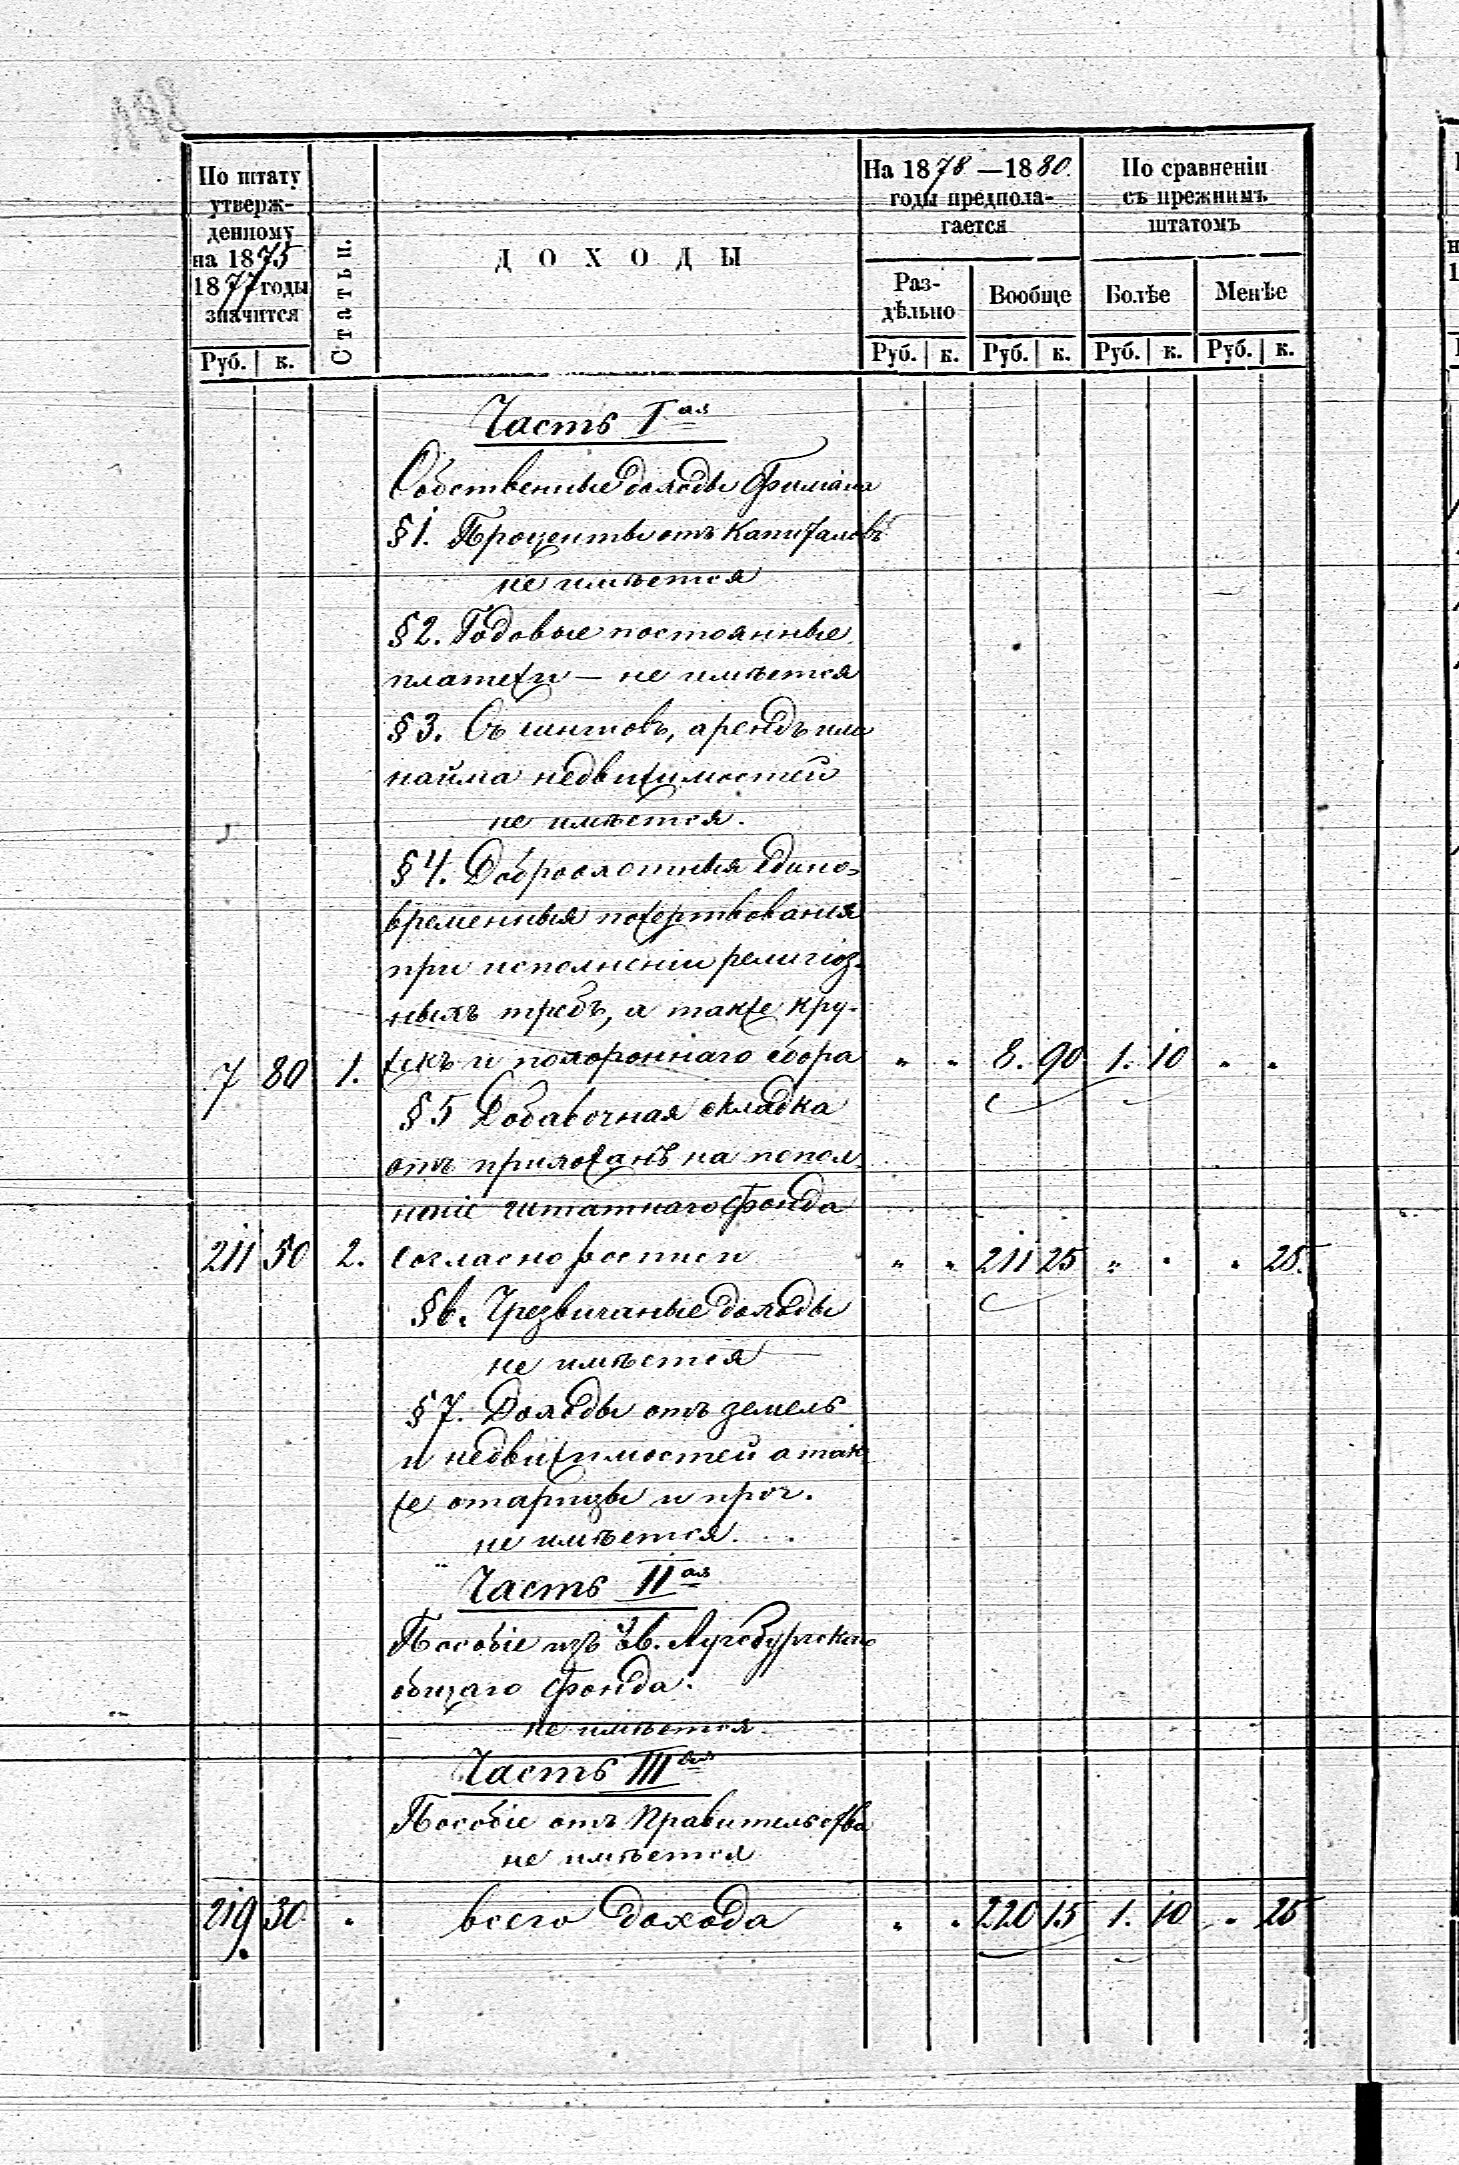 По штату
утверж-
денному
на 1875
1877 годы
значится
Руб. к.
Статьи.
ДОХОДЫ
На 1878—1880.
годы предпола-
гается
Раз-
дѣльно
Вообще
Руб. к. Руб. к.
По сравненіи
съ прежнимъ
штатомъ
Болѣе Менѣе
Руб. к. Руб. к.
Часть Iая
Собственные доходы Филіала
§1. Проценты отъ капиталовъ
не имѣется
§2. Годовые постоянные
платежи — не имѣется
§3. Съ чиншовъ, арендъ или
найма недвижимостей
не имѣется.
§4. Доброхотныя едино-
временныя пожертвованія
при исполненіи религіоз-
ныхъ требъ, а также кру-
7 80 1. жекъ и похороннаго сбора " " 8. 90 1. 10 " "
§5 Добавочная складка
отъ прихожанъ на попол-
неніе штатнаго фонда
211 50 2. согласно росписи " " 211 25 " " " 25.
§6. Чрезвычаные доходы
не имѣется
§7. Доходы отъ земель
и недвижимостей а так
же отарицы и проч.
не имѣется.
Часть IIая
Пособіе изъ Ев. Аугсбургскаго
общаго фонда.
не имѣется.
Часть IIIая
Пособіе отъ Правительства
не имѣется
219 30 " всего дохода " " 220 15 1. 10 " 25